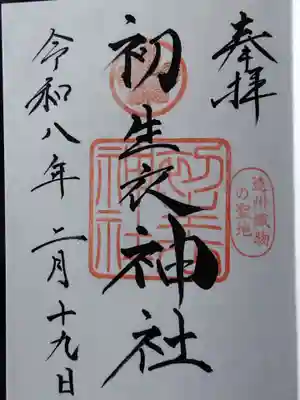 奉拝
遠州織物
の聖地
初生衣神社
令和八年 二月十九日